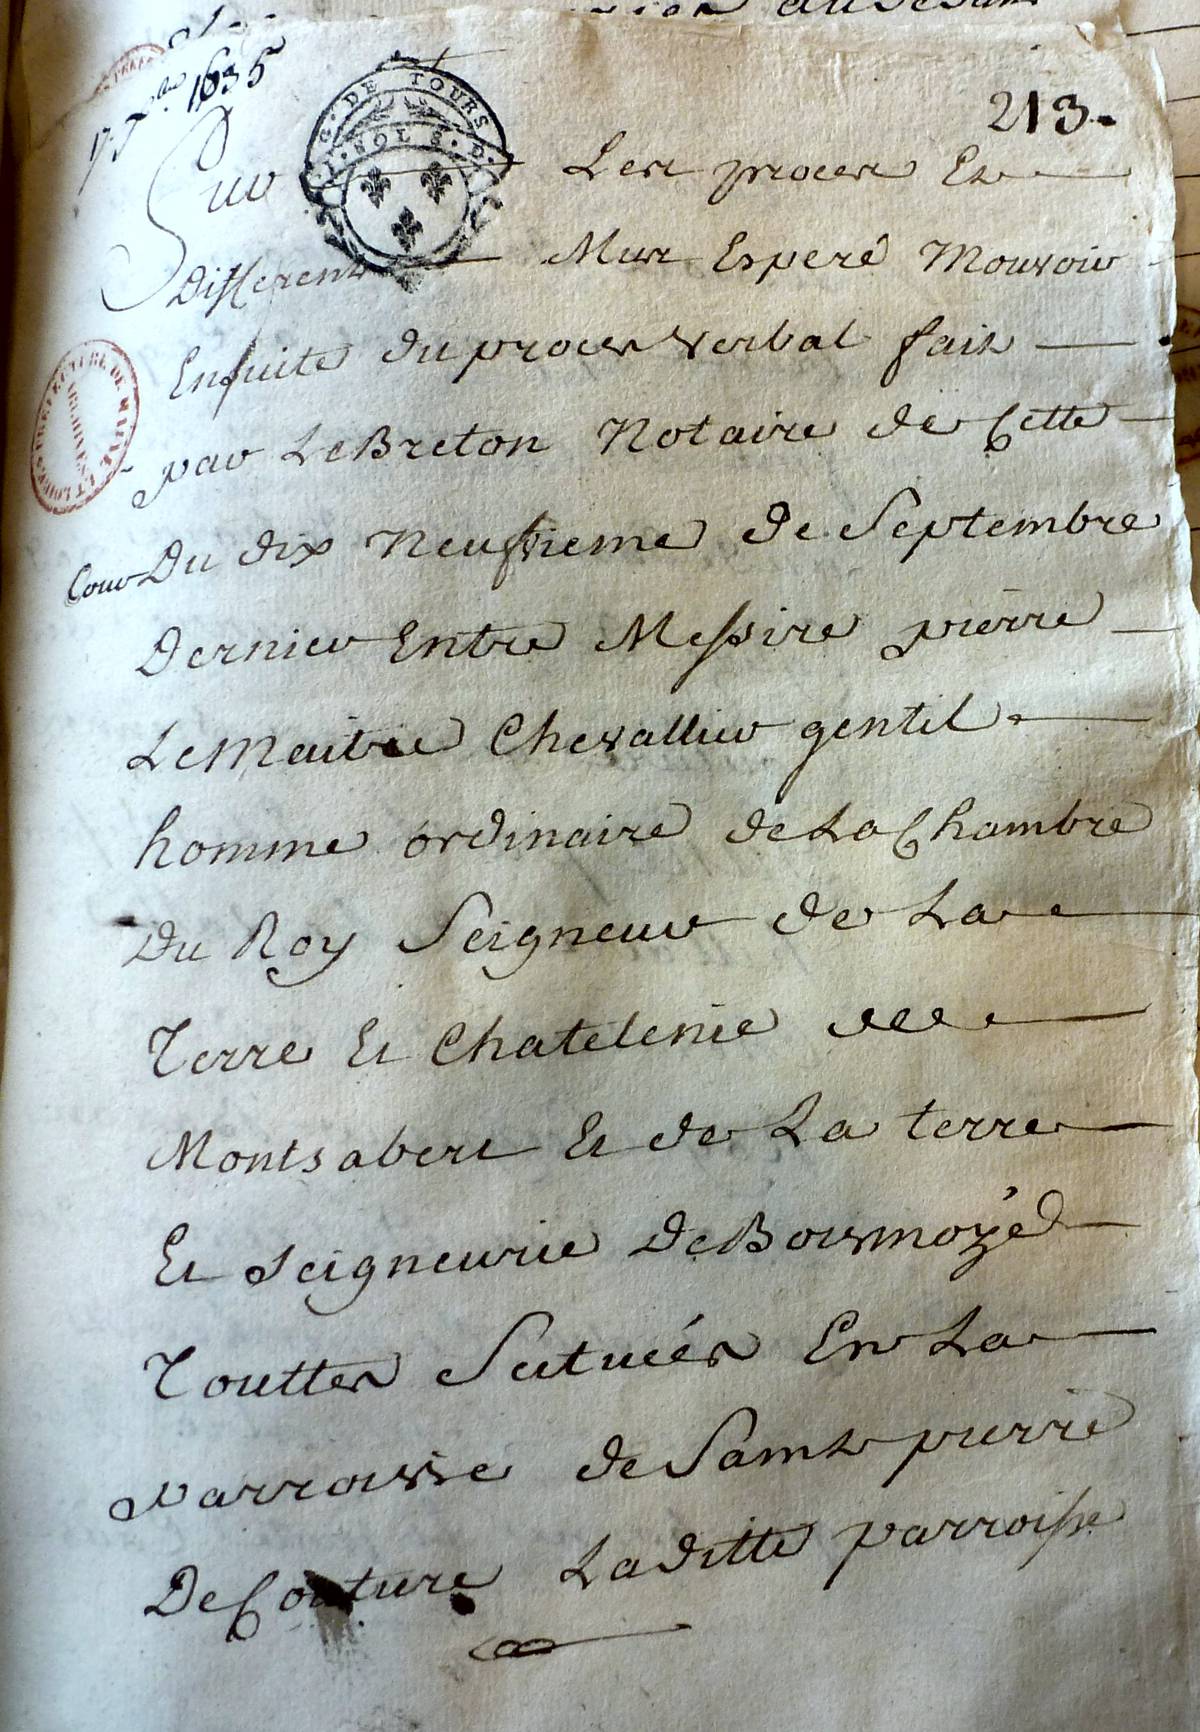 17. 7bre 1635
213.
G. DE TOURS
Sur Les proces Et
differents Mus Esperé Mouvoir
Ensuite du proces verbal fait
par LeBreton Notaire de Cette
Cour Du dix Neufvieme de Septembre
Dernier Entre Messire pierre
LeMaitre Chevallier gentil
homme ordinaire de La Chambre
Du Roy Seigneur de La
Terre Et Chatelenie de
Montsabert Et de La terre
Et Seigneurie DeBoismozé
Touttes Scituées En La
parroisse de Saint pierre
De Couture Laditte parroisse